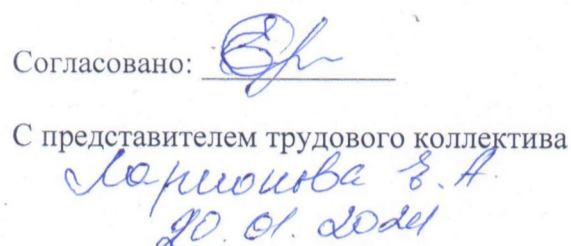 Согласовано:
С представителем трудового коллектива
Ларионова Е.А.
20.01.2021